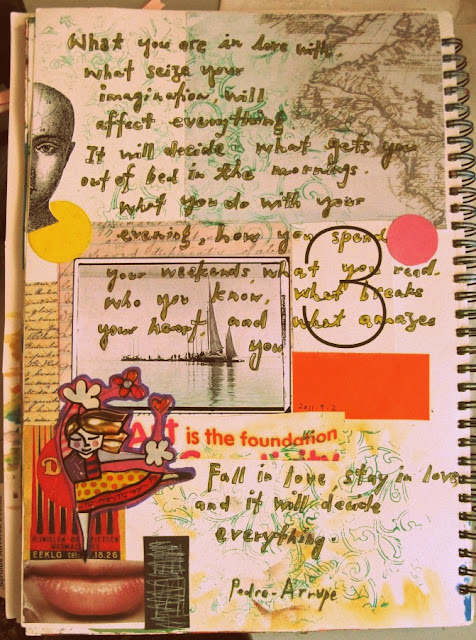 What you are in love with.
what seize your
imagination will
affect everything
It will decide what gets you
out of bed in the mornings.
what you do with your
evening, how you spend
3
your weekends, what you read.
who you know, what breaks
your heart and what amazes
you
2011.9.2
Art is the foundation
Creativity
Fall in love, stay in love
and it will decide
everything.
EEKLO tel: .18.26
Pedro-Arrupe